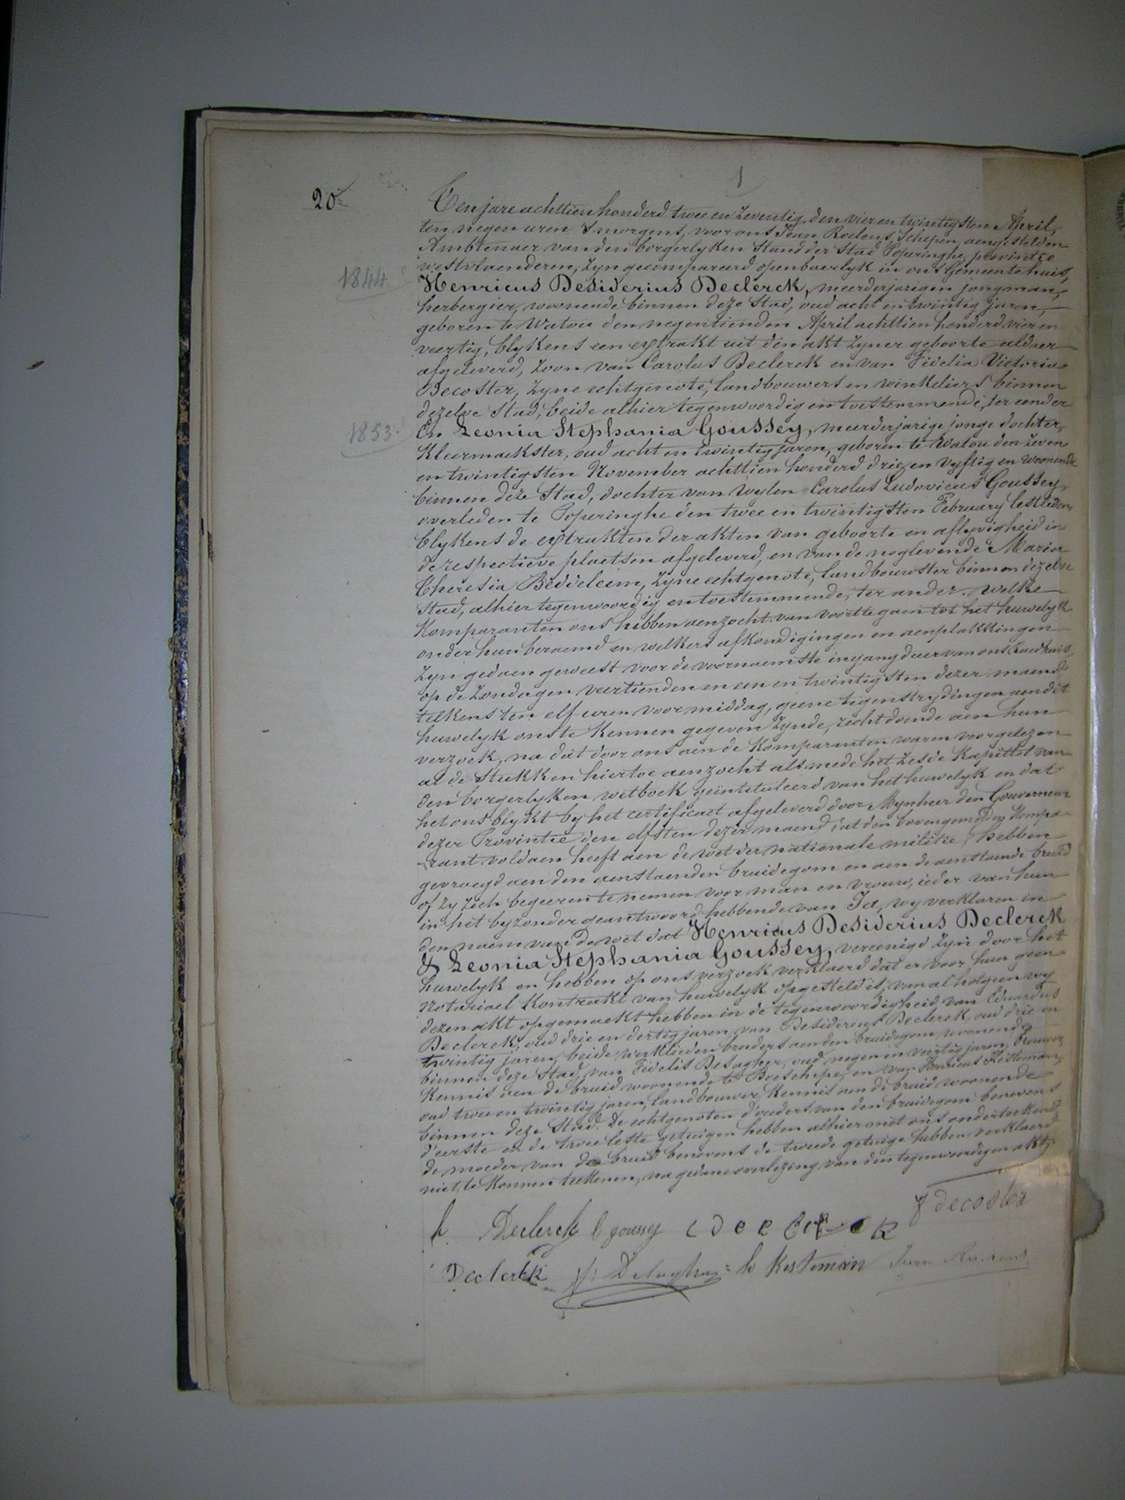 1
20
Ten jare achttien honderd twee en zeventig, den vier en twintigsten April,
ten negen uren 's morgens, voor ons Jean Roelens, Schepen, aengestelden
Ambtenaer van den borgerlyken Stand der Stad Poperinghe, provintie
westvlaenderen, zyn gecompareerd openbaerlyk in ons Gemeentehuis,
1844
Henricus Desiderius Declerck, meerderjarigen jongman,
herbergier, woonende binnen deze Stad, oud acht en twintig jaren,
geboren te Watou den negentienden April achttien honderd vier en
veertig, blykens een extrakt uit den akt zyner geboorte aldaer
afgeleverd, zoon van Carolus Declerck en van Fidelia Victoria
Decoster, zyne echtgenote, landbouwers en winkeliers binnen
dezelve Stad, beide alhier tegenwoordig en toestemmende, ter eender
1853
En Leonia Stephania Goussey, meerderjarige jonge dochter,
Kleermaekster, oud acht en twintig jaren, geboren te Watou den zeven
en twintigsten November achttien honderd drie en vyftig en woonende
binnen deze Stad, dochter van wylen Carolus Ludovicus Goussey,
overleden te Poperinghe den twee en twintigsten February lestleden
blykens de extrakten der akten van geboorte en aflyvigheid in
de respectieve plaetsen afgeleverd, en van de noglevende Maria
Theresia Bedeleem, zyne echtgenote, landbouwster binnen dezelve
Stad, alhier tegenwoordig en toestemmende, ter ander. Welke
Komparanten ons hebben aenzocht van voorttegaen tot het huwelyk
onder hun beraemd en welkers afkondigingen en aenplakkingen
zyn gedaen geweest voor de voornaemste ingangdeur van ons Raedhuis,
op de Zondagen veertienden en een en twintigsten dezer maend
telkens ten elf uren voormiddag, geene tegenstrydingen aen dit
huwelyk ons te kennen gegeven zynde, recht doende aen hun
verzoek, na dat door ons aen de Komparanten waren voorgelezen
al de stukken hiertoe aenzocht alsmede het zesde Kapittel van
den borgerlyken wetboek geïntituleerd van het huwelyk en dat
het ons blykt by het certificaet afgeleverd door Mynheer den Gouverneur
dezer Provintie den elfsten dezer maend dat den bovengemelden Kompa-
rant voldaen heeft aen de wet der nationale militie, hebben
gevraegd aen den aenstaenden bruidegom en aen de aenstaende bruid
of zy zich begeeren te nemen voor man en vrouw, ieder van hun
in het byzonder geantwoord hebbende van Ja, wy verklaren in
den naem van de wet dat Henricus Desiderius Declerck
& Leonia Stephania Goussey, vereenigd zyn door het
huwelyk en hebben op ons verzoek verklaerd dat er voor hun geen
Notariael Kontrakt van huwelyk opgesteld is, van al hetgeen wy
dezen akt opgemaekt hebben in de tegenwoordigheid van Eduardus
Declerck, oud drie en dertig jaren, van Desiderius Declerck oud drie en
twintig jaren, beide werklieden broeders aen den bruidegom woonende
binnen deze Stad, van Fidelis Desagher, oud negen en veertig jaren, brouwer
Kennis aen de bruid woonende te Boeschepe, en van Henricus Kesteman,
oud twee en twintig jaren, landbouwer, Kennis aen de bruid woonende
binnen deze Stad. De echtgenoten d'ouders van den bruidegom benevens
d'eerste en de twee leste getuigen hebben alhier met ons onderteekend
de moeder van de bruid benevens de tweede getuige hebben verklaerd
niet te konnen teekenen, na gedane voorlezing van den tegenwoordigen akt.
h. Declerck l goussey c Declerck f decoster
Declerck Desagher h kesteman Jean Roelens